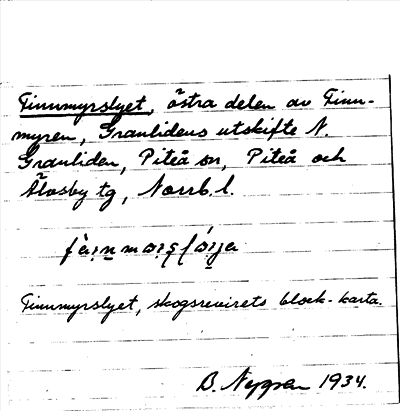 Finnmyrslyet, östra delen av Finn-
myren, Granlidens utskifte N.
Granliden, Piteå sn, Piteå och
Älvsby tg, Norrb. l.
Finnmyrslyet, skogsrevirets block-karta.
B. Nygren 1934.